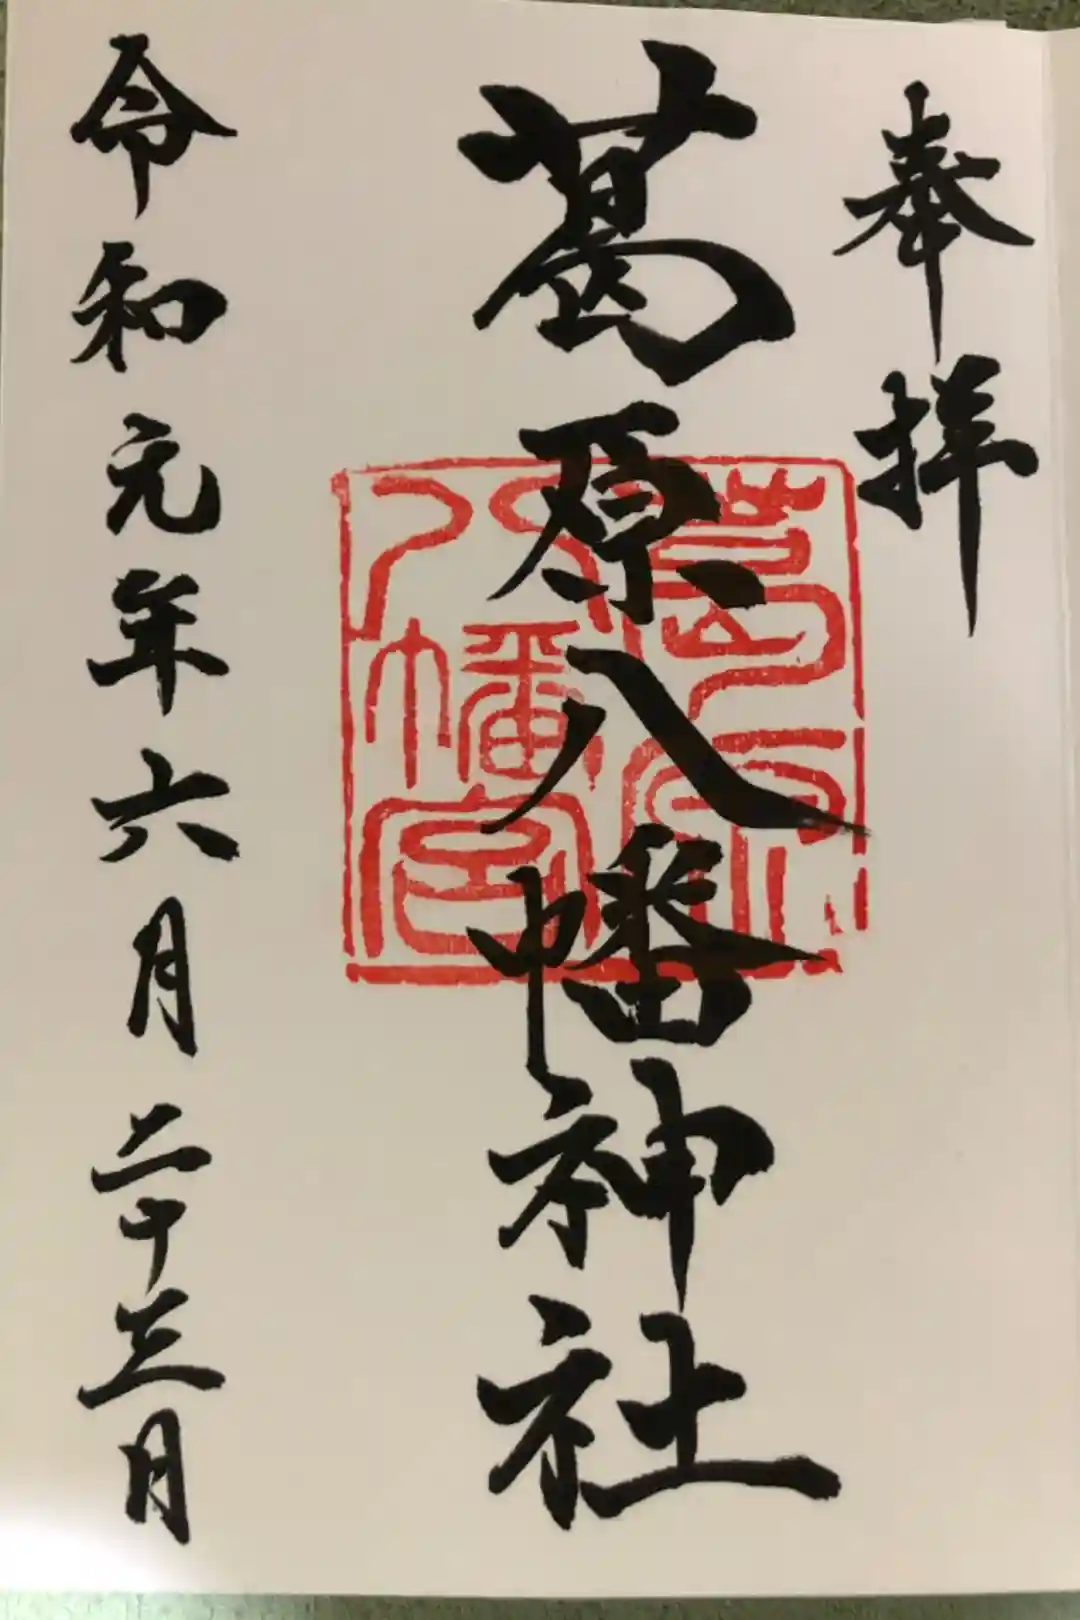 奉拝
葛原八幡神社
葛原八幡宮
令和元年六月二十三日